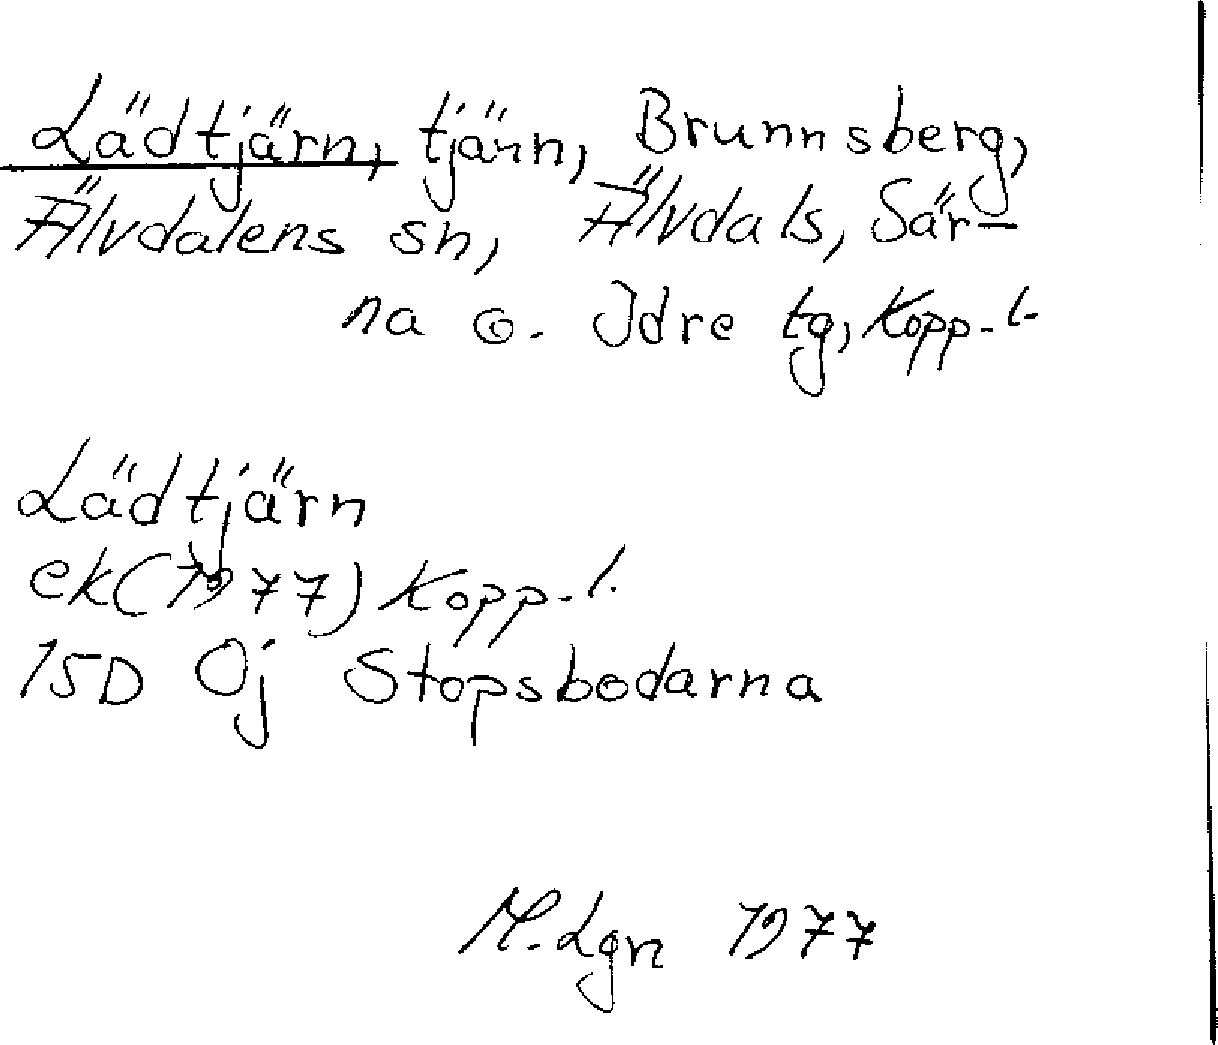 Lädtjärn, tjärn, Brunnsberg,
Älvdalens sn, Älvdals, Sär-
na o. Idre tg, Kopp-l.
Lädtjärn
ek(1977) Kopp-l.
15D Oj Stopsbodarna
M.Lgn 1977